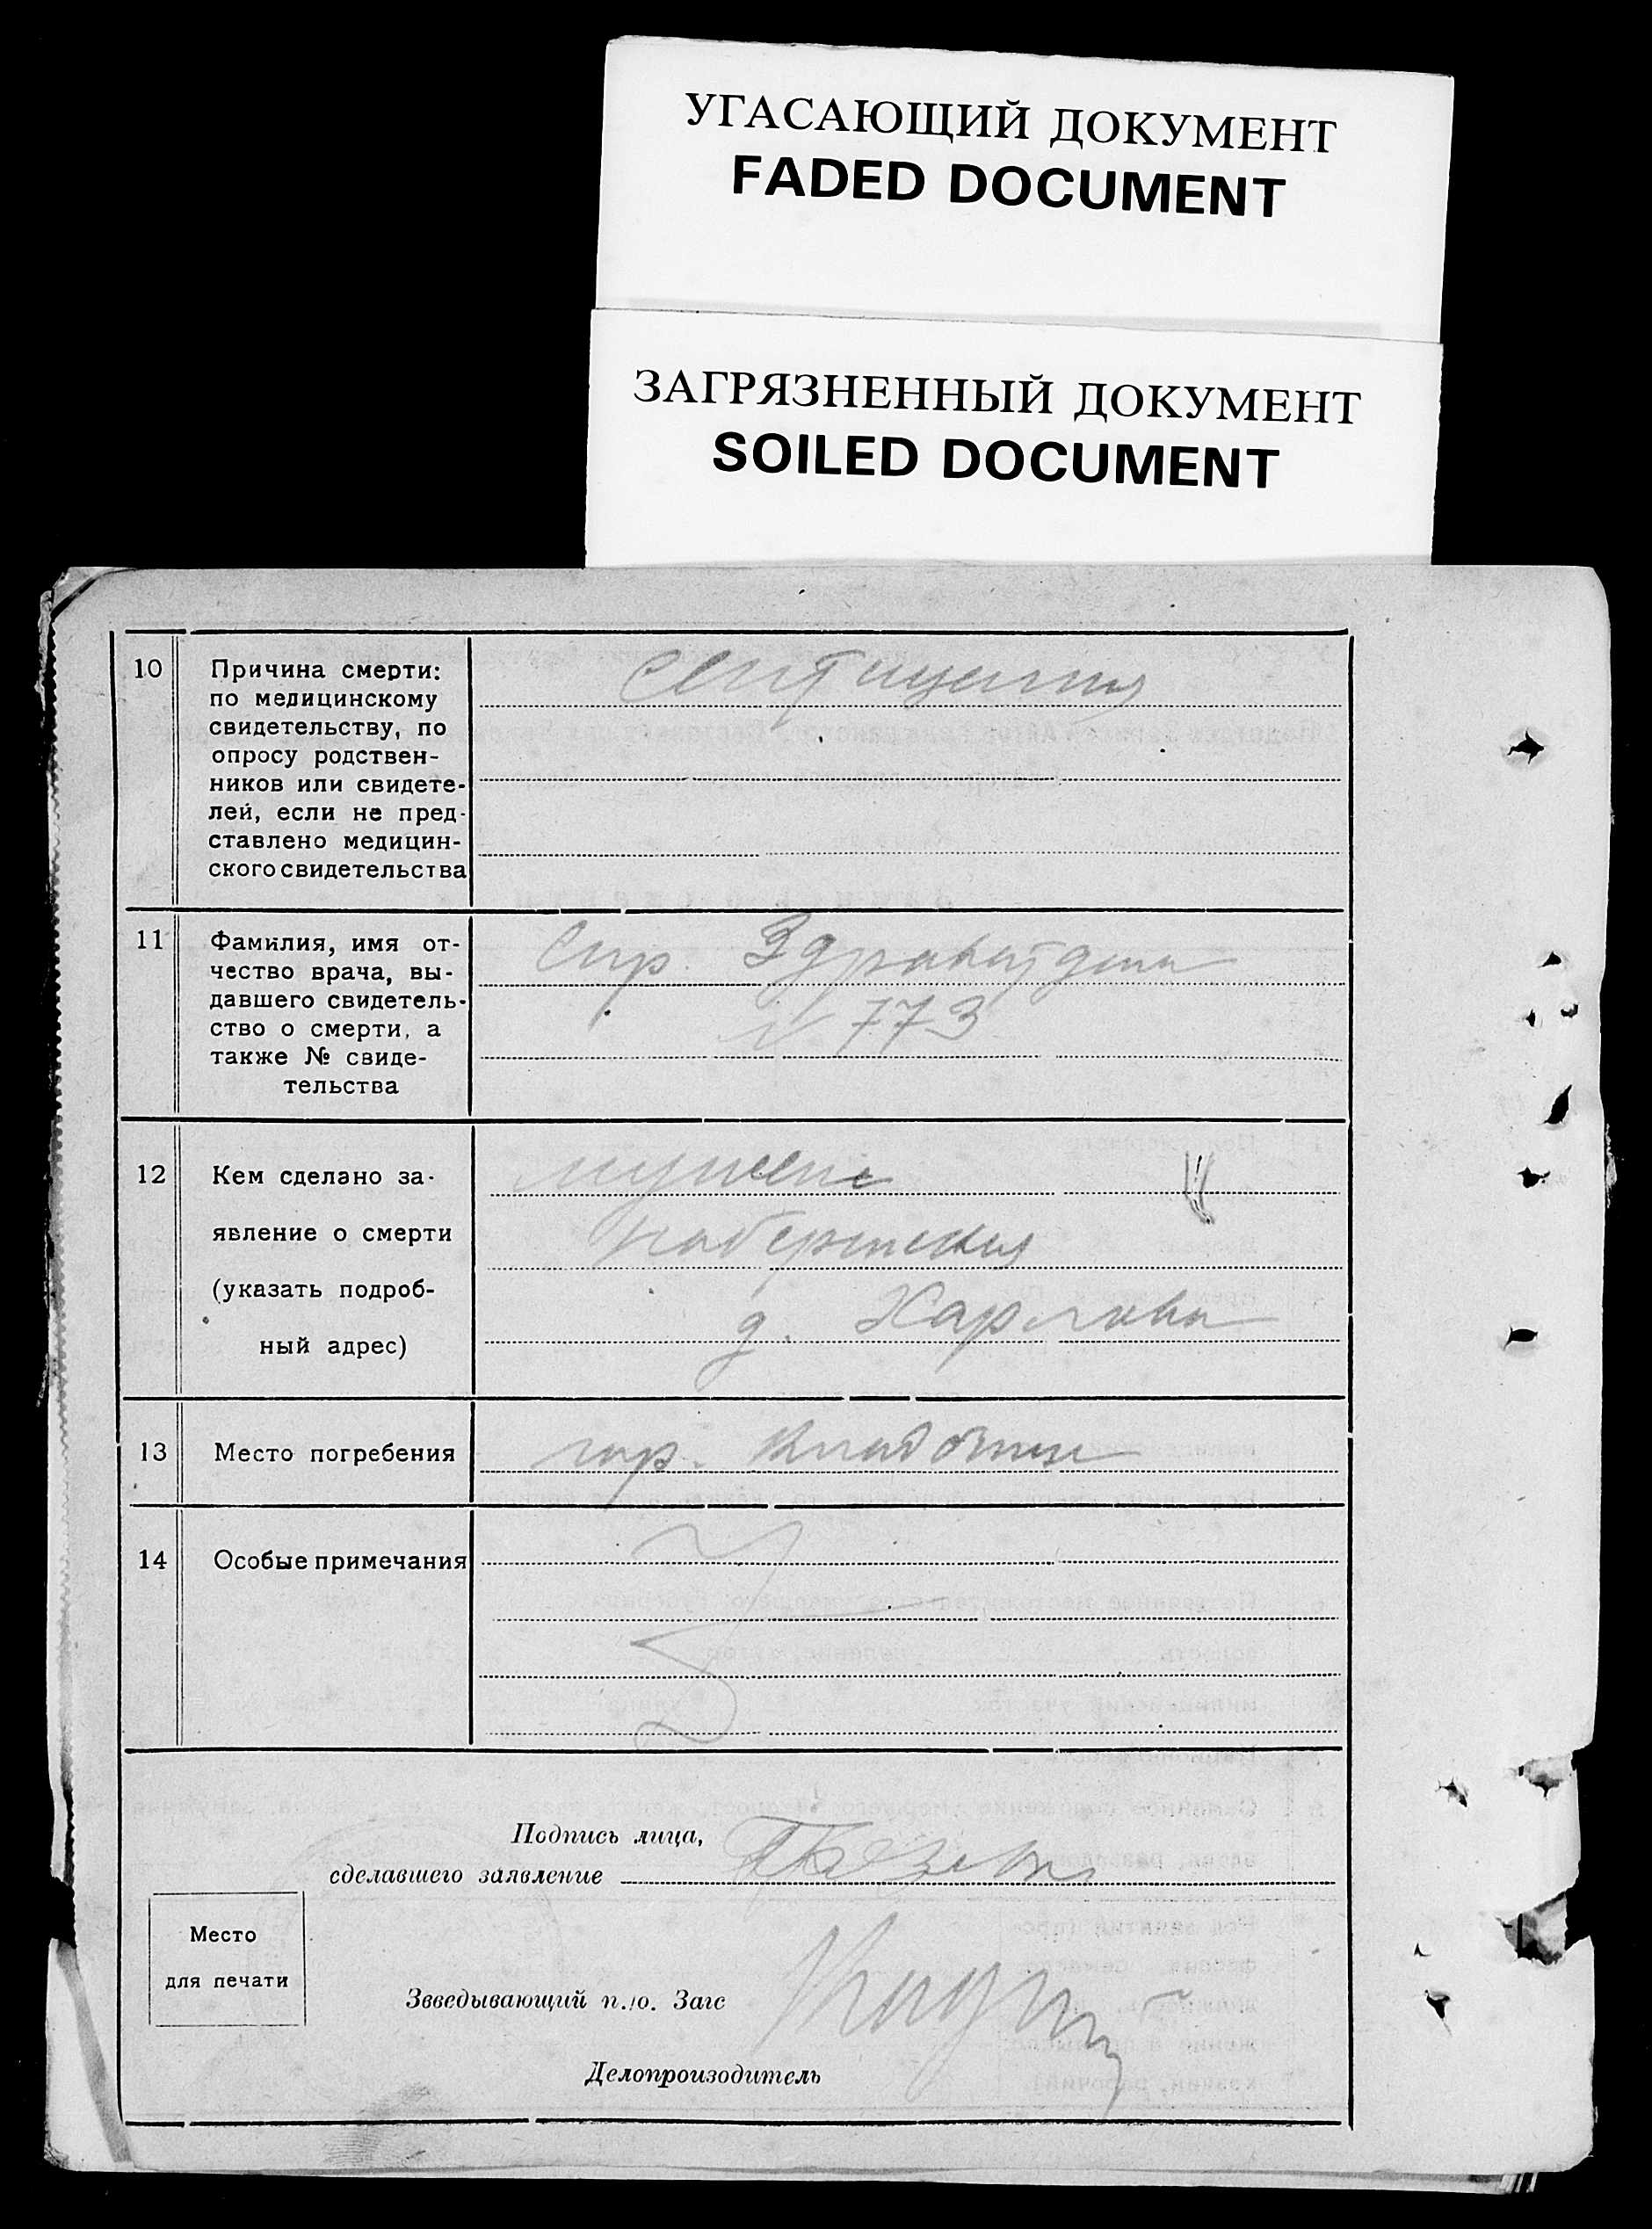 УГАСАЮЩИЙ ДОКУМЕНТ
FADED DOCUMENT
ЗАГРЯЗНЕННЫЙ ДОКУМЕНТ
SOILED DOCUMENT
10 Причина смерти:
по медицинскому
свидетельству, по
опросу родствен-
ников или свидете-
лей, если не пред-
ставлено медицин-
ского свидетельства
септицемия
11 Фамилия, имя от-
чество врача, вы-
давшего свидетель-
ство о смерти, а
также № свиде-
тельства
Спр. Здравотдела
№ 773
12 Кем сделано за-
явление о смерти
(указать подроб-
ный адрес)
мужем
Набережная
д. Харлова
13 Место погребения
гор. кладбище
14 Особые примечания
Подпись лица,
сделавшего заявление
Место
для печати
Зведывающий п./о. Загс
Делопроизводитель